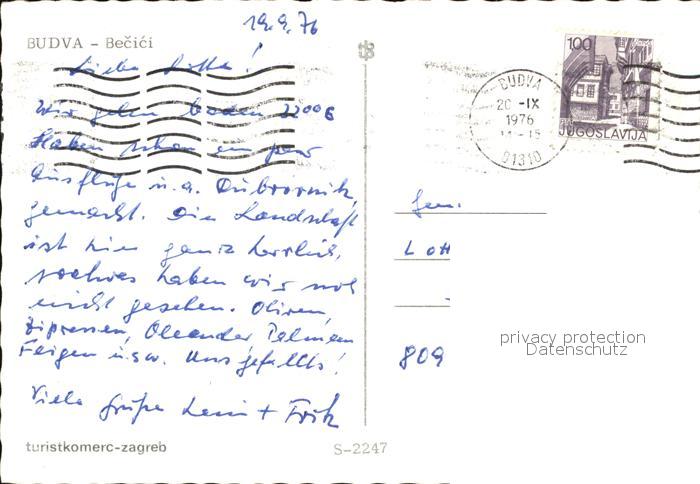 19.9.76
BUDVA – Bečići
Liebe Lotte!
Wir gehen baden 22°C
Haben schon ein paar
Ausflüge u.a. Dubrovnik
gemacht. Die Landschaft
ist hier ganz herrlich,
sowas haben wir noch
nicht gesehen. Oliven,
Zipressen, Oleander, Palmen
Feigen u.s.w. Uns gefällts!
Viele Grüße Leni + Fritz
turistkomerc-zagreb
S-2247
BUDVA
20 -IX
1976
91310
100
JUGOSLAVIJA
Fam.
LOH
809
privacy protection
Datenschutz